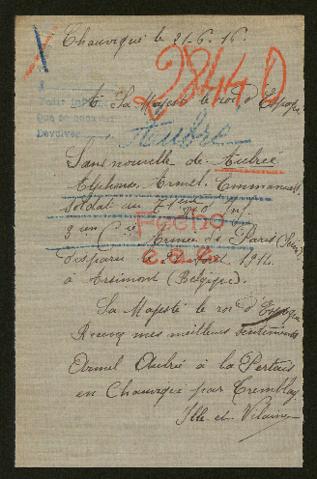 Chauvigné le 21-6-16.
28440
A Sa Majesté le roi d'Espagne
Devolver
Aubrée
Sans nouvelle de Aubrée
Alphonse, Armel, Emmanuel
Soldat au 70 Inf.
Fecho
9 ième Cie Armée de Paris
disparu Août 1914
à Arsimont (Belgique).
Sa Majesté le roi d'Espagne
Recevez mes meilleurs sentiments
Armel Aubrée à la Pertais
en Chauvigné par Tremblay
Ille-et-Vilaine